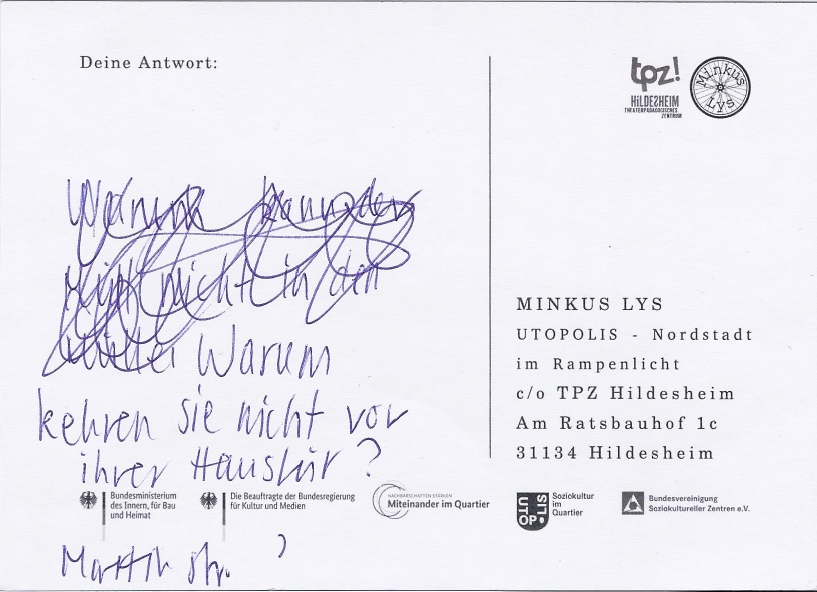 Deine Antwort:
tpz!
HiLDESHEIM
THEATERPÄDAGOGISCHES
ZENTRUM
Minkus
Lys
Warum kann der
Müll nicht in den
Warum
kehren sie nicht vor
ihrer Haustür?
MINKUS LYS
UTOPOLIS - Nordstadt
im Rampenlicht
c/o TPZ Hildesheim
Am Ratsbauhof 1c
31134 Hildesheim
Bundesministerium
des Innern, für Bau
und Heimat
Die Beauftragte der Bundesregierung
für Kultur und Medien
NACHBARSCHAFTEN STÄRKEN
Miteinander im Quartier
UTOPOLIS
Soziokultur
im
Quartier
Bundesvereinigung
Soziokultureller Zentren e.V.
str. ?